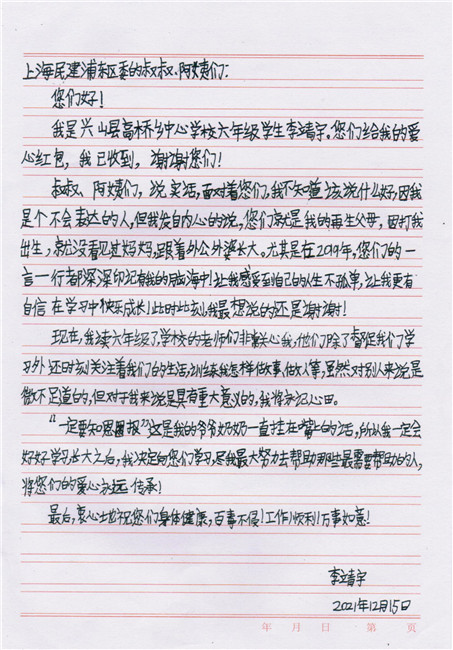 上海民建浦东区委的叔叔、阿姨们：
您们好！
我是兴山县高桥乡中心学校六年级学生李靖宇。您们给我的爱
心红包，我已收到，谢谢您们！
叔叔、阿姨们，说实话，面对着您们，我不知道该说什么好，因我
是个不会表达的人，但我发自内心的说，您们就是我的再生父母，因打我
出生，就没看见过妈妈，跟着外公外婆长大。尤其是在2019年，您们的一
言一行都深深印记在我的脑海中！让我感受到自己的人生不孤单，让我更有
自信在学习中快乐成长！此时此刻，我最想说的还是谢谢！
现在，我读六年级了，学校的老师们非常关心我，他们除了督促我们学
习外还时刻关注着我们的生活，训练我怎样做事，做人等，虽然对别人来说是
微不足道的，但对于我来说是具有重大意义的，我将永记心田。
“一定要知恩图报”这是我的爷爷奶奶一直挂在嘴上的话，所以我一定会
好好学习长大之后，我决定向您们学习，尽我最大努力去帮助那些最需要帮助的人，
将您们的爱心永远传承！
最后，衷心地祝您们身体健康，百事不侵！工作顺利！万事如意！
李靖宇
2021年12月15日
年 月 日 第 页